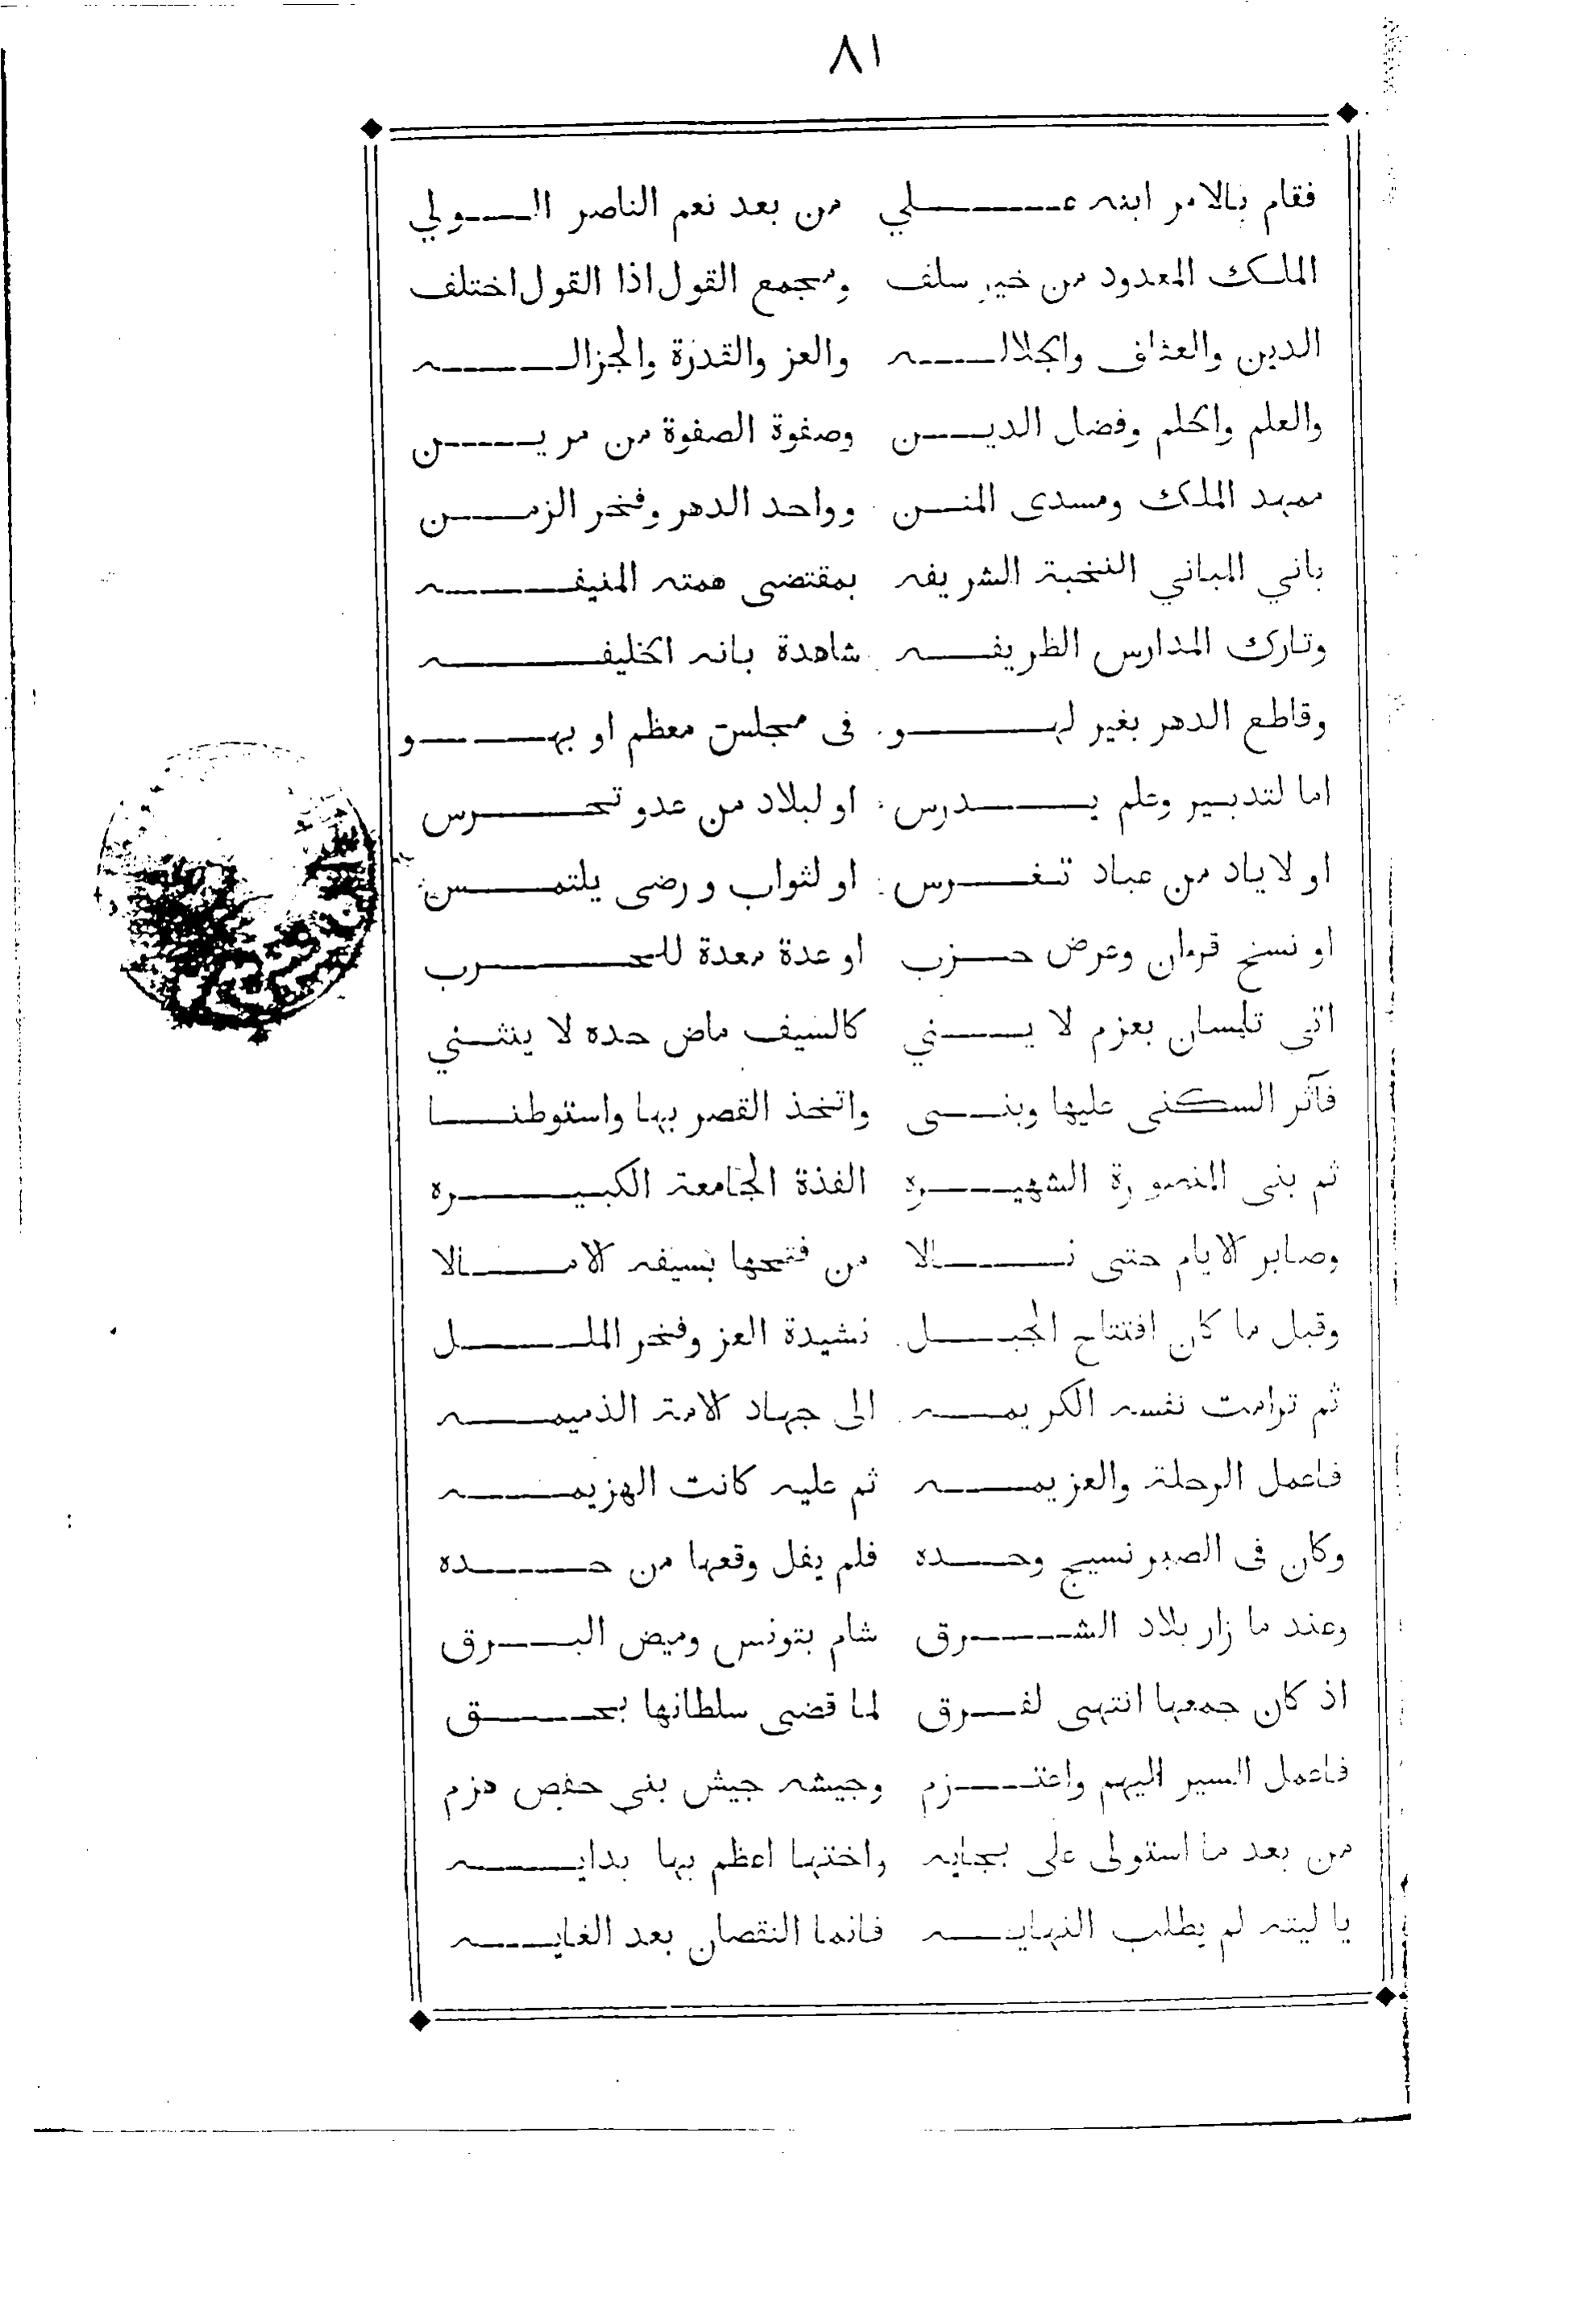 ٨١
فقام بالامر ابنه علي من بعد نعم الناصر الولي
الملك المعدود من خير سلف ومجمع القول اذا القول اختلف
الدين والعفاف والجلاله والعز والقدرة والجزاله
والعلم والحلم وفضل الدين وصفوة الصفوة من مرين
ممهد الملك ومسدى المنن وواحد الدهر وفخر الزمن
باني المباني النخبة الشريفه بمقتضى همته المنيفه
وتارك المدارس الظريفه شاهدة بانه الخليفه
وقاطع الدهر بغير لهو فى مجلس معظم او بهو
اما لتدبير وعلم يدرس او لبلاد من عدو تحرس
او لاياد من عباد تغرس او لثواب ورضى يلتمس
او نسخ قرءان وعرض حزب او عدة معدة للحرب
اتى تلمسان بعزم لا يني كالسيف ماض حده لا ينثني
فآثر السكنى عليها وبنى واتخذ القصر بها واستوطنا
ثم بنى المنصورة الشهيره الفذة الجامعة الكبيره
وصابر الايام حتى نالا من فتحها بسيفه الامالا
وقبل ما كان افتتاح الجبل نشيدة العز وفخر الملل
ثم ترامت نفسه الكريمه الى جهاد الامة الذميمه
فاعمل الرحلة والعزيمه ثم عليه كانت الهزيمه
وكان فى الصبر نسيج وحده فلم يفل وقعها من حده
وعند ما زار بلاد الشرق شام بتونس وميض البرق
اذ كان جمعها انتهى لفرق لما قضى سلطانها بحق
فاعمل السير اليهم واعتزم وجيشه جيش بنى حفص هزم
من بعد ما استولى على بجايه واختها اعظم بها بدايه
يا ليته لم يطلب النهايه فانما النقصان بعد الغايه